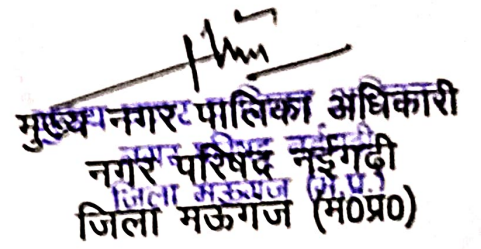 मुख्य नगर पालिका अधिकारी
नगर परिषद नईगढ़ी
जिला मऊगंज (म०प्र०)